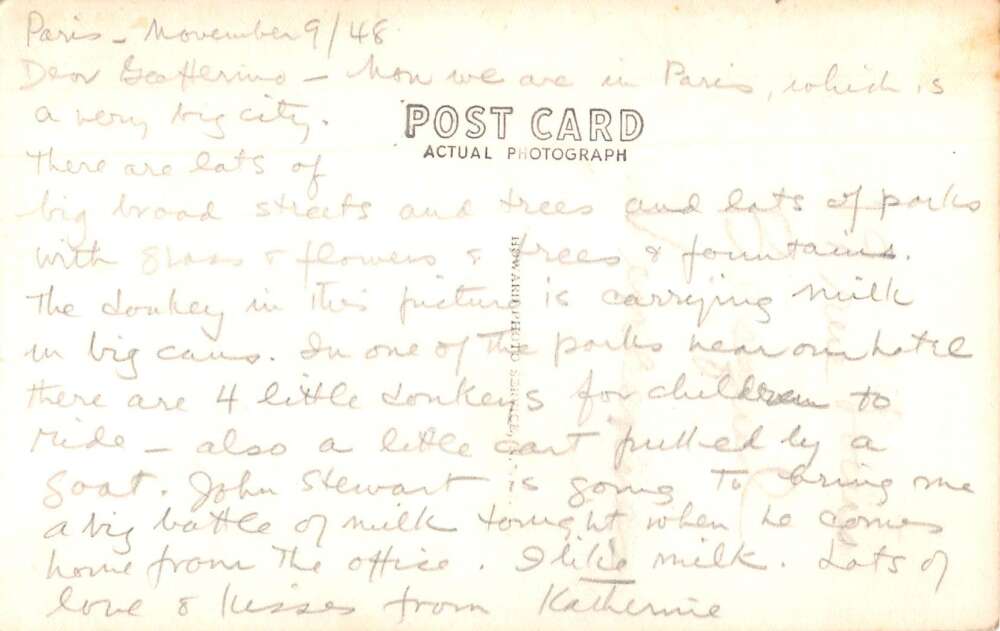 Paris - November 9/48
Dear - Now we are in Paris, which is
a very big city.
POST CARD
ACTUAL PHOTOGRAPH
There are lots of
big broad streets and trees and lots of parks
with grass & flowers & trees & fountains.
The donkey in this picture is carrying milk
in big cans. In one of the parks near our hotel
there are 4 little donkeys for children to
ride - also a little cart pulled by a
goat. John Stewart is going to bring me
a big bottle of milk tonight when he comes
home from the office. I like milk. Lots of
love & kisses from Katherine
HOWARD PHOTO SERVICE,